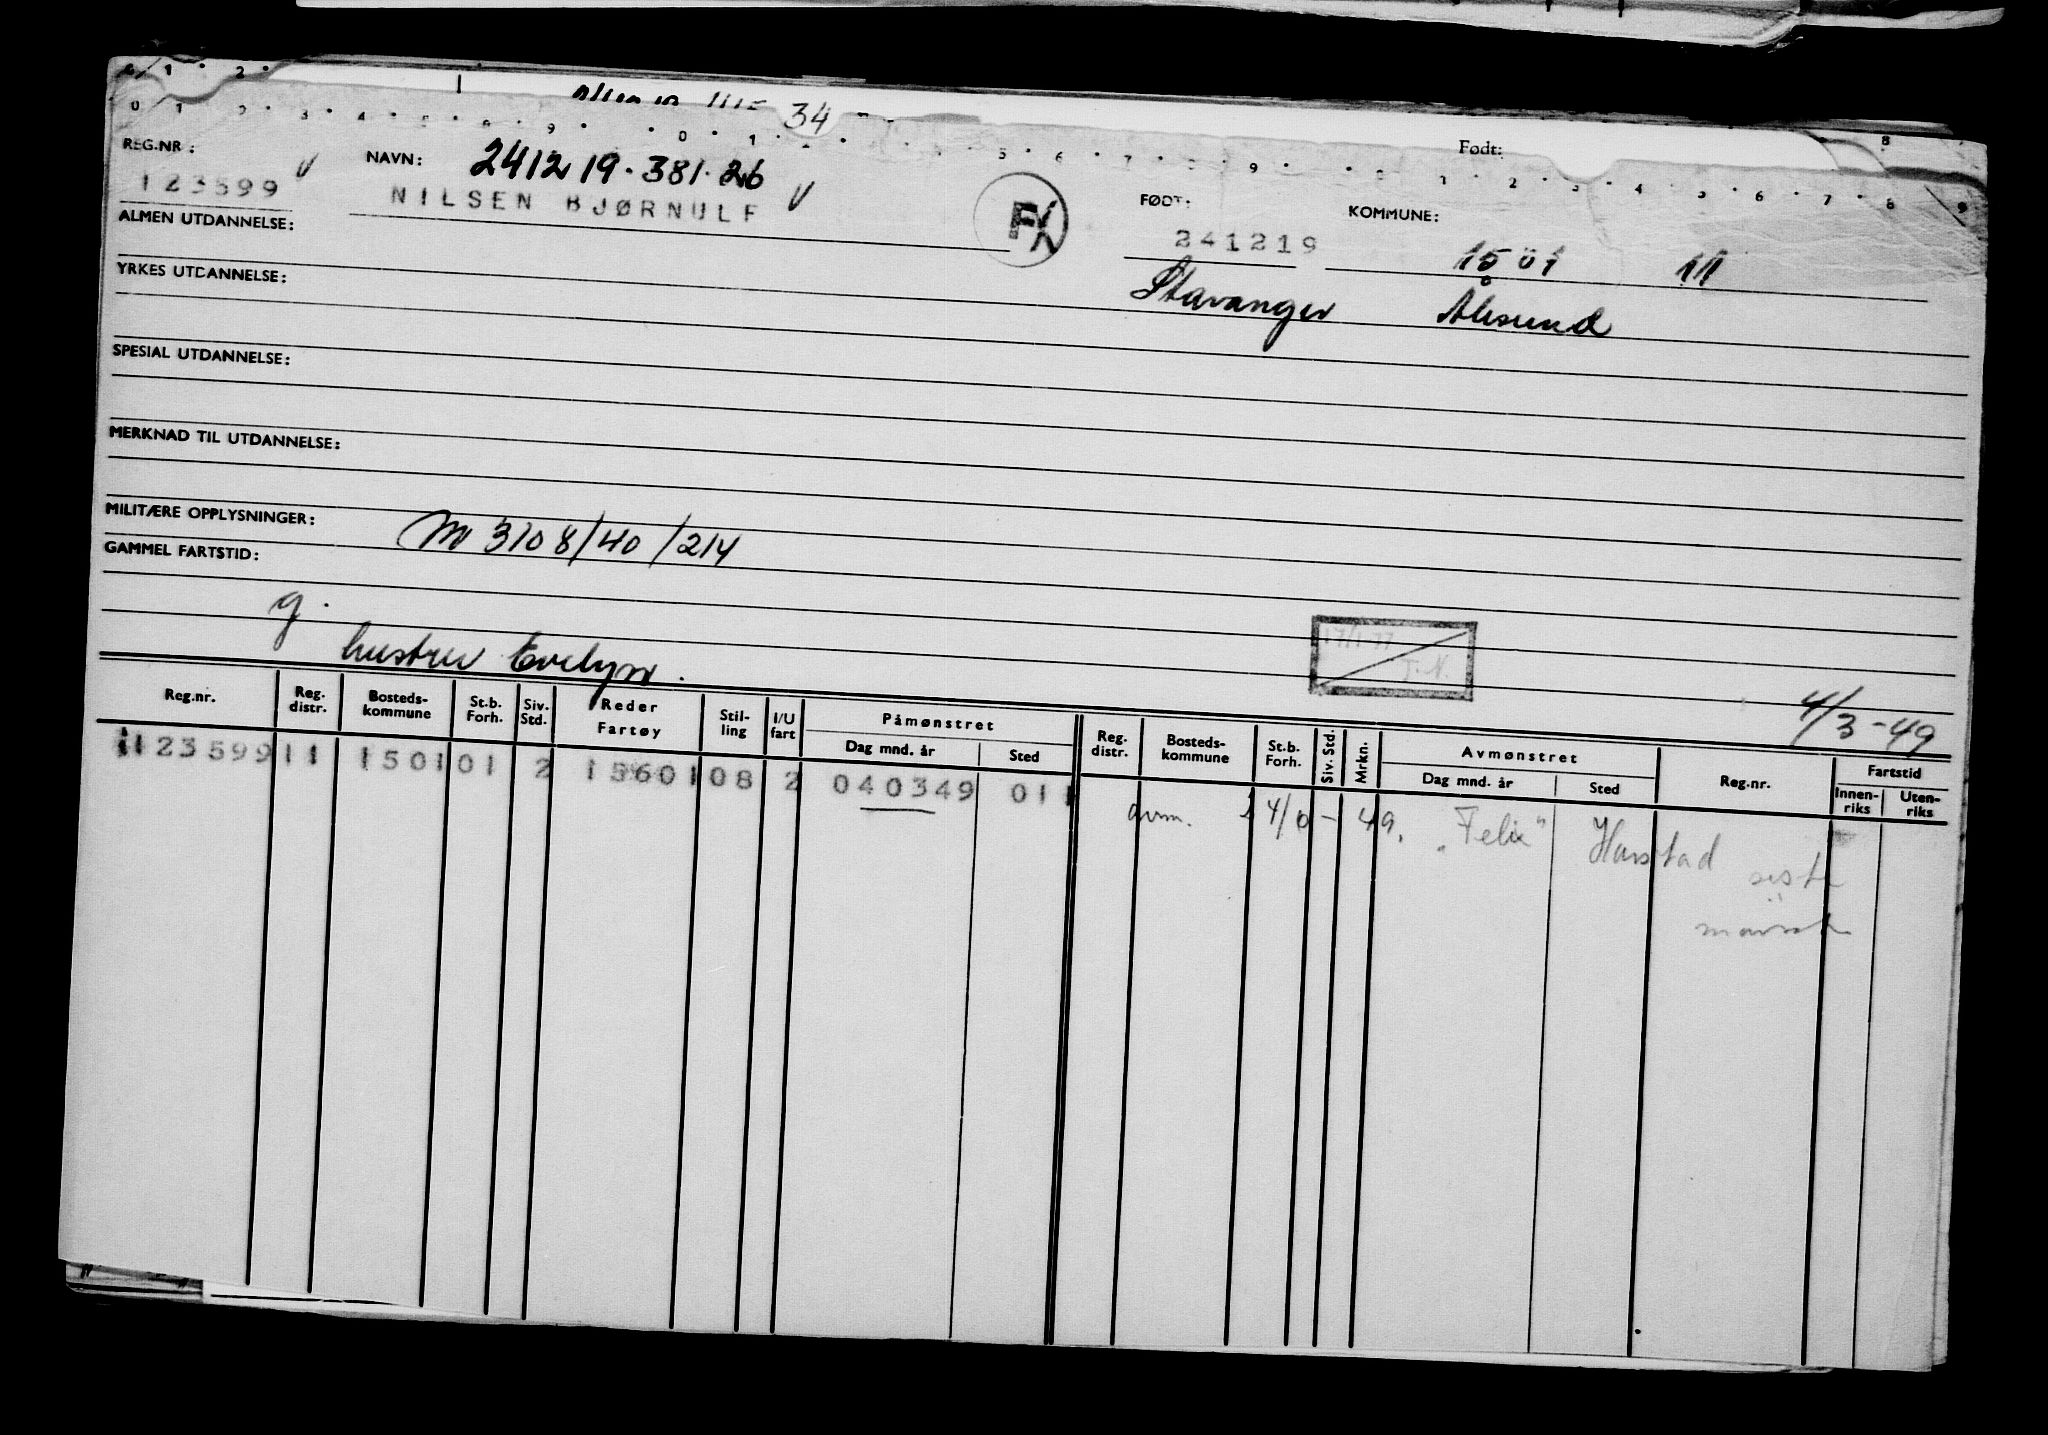 34
Født:
REG.NR: NAVN: 241219.381.26
123599 NILSEN BJØRNULF FØDT: KOMMUNE:
241219 1501 11
ALMEN UTDANNELSE:
Stavanger Ålesund
YRKES UTDANNELSE:
SPESIAL UTDANNELSE:
MERKNAD TIL UTDANNELSE:
MILITÆRE OPPLYSNINGER: M 3108/40/214
GAMMEL FARTSTID:
g.
hustru Evelyn.
17/1-77
J.N.
4/3-49
Reg.nr. Reg. distr. Bosteds-kommune St.b. Forh. Siv. Std. Reder Fartøy Stil-ling I/U fart Påmønstret Dag mnd. år Sted Reg. distr. Bosteds-kommune St.b. Forh. Siv. Std. Mrkn. Avmønstret Dag mnd. år Sted Reg.nr. Fartstid Innen-riks Uten-riks
123599 11 1501 01 2 15601 08 2 040349 011
avm. 4/6-49. "Felix" Harstad
siste
mønstr